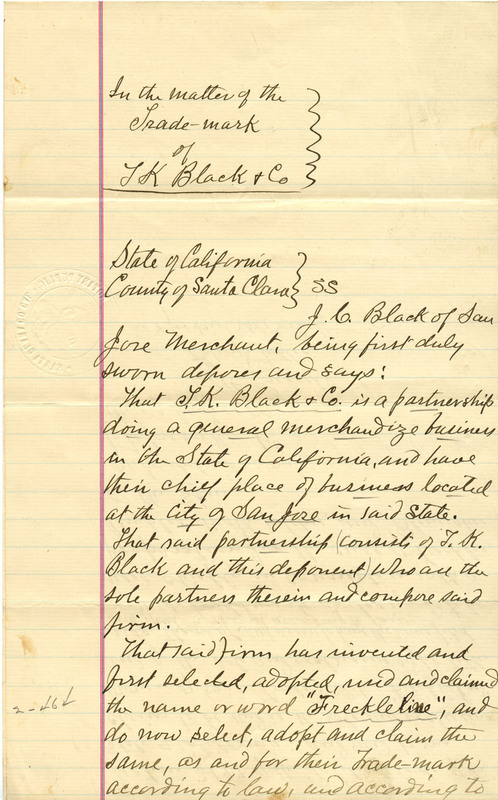 In the matter of the
Trade-mark
of
T K Black & Co
State of California
County of Santa Clara
SS
J. C. Black of San
Jose Merchant, being first duly
sworn deposes and says:
That T. K. Black & Co. is a partnership
doing a general merchandize business
in the State of California, and have
their chief place of business located
at the City of San Jose in said State.
That said partnership (consists of T. K.
Black and this deponent) who are the
sole partners therein and compose said
firm.
That said firm has invented and
first selected, adopted, used and claimed
the name or word "Freckleline", and
do now select, adopt and claim the
same, as and for their Trade-mark
according to law, and according to